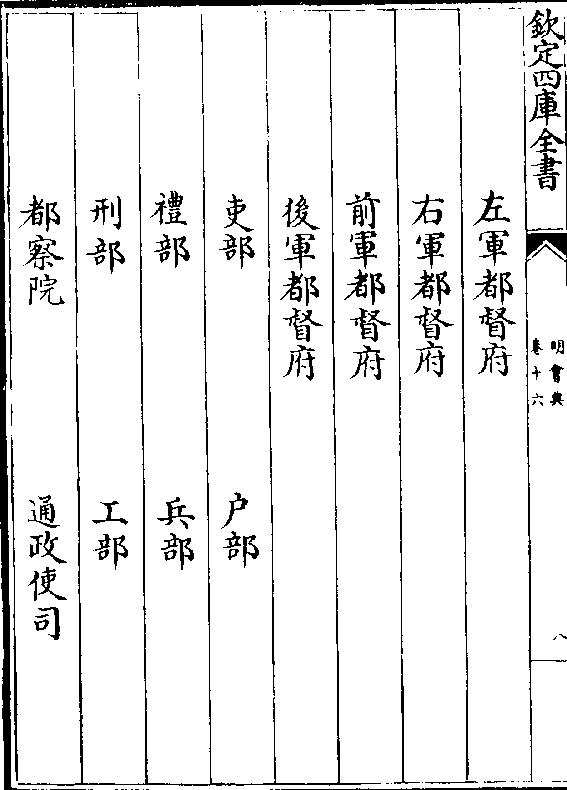 欽定四庫全書
明會典
卷十六
八
左軍都督府
右軍都督府
前軍都督府
後軍都督府
吏部 户部
禮部 兵部
刑部 工部
都察院 通政使司